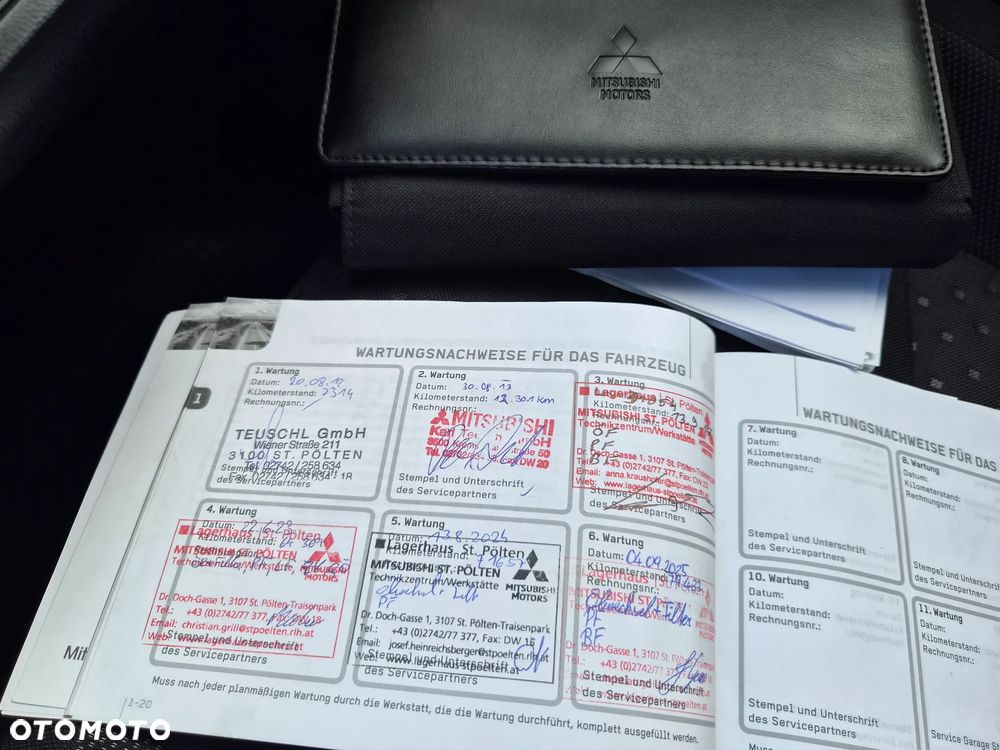 MITSUBISHI
MOTORS
WARTUNGSNACHWEISE FÜR DAS FAHRZEUG
1. Wartung
Datum:
Kilometerstand: 7314
Rechnungsnr.:
TEUSCHL GmbH
Wiener Straße 211
3100 ST. PÖLTEN
Tel. 02742 / 258 634
2. Wartung
Datum: 30.08.13
Kilometerstand: 12.301 km
Rechnungsnr.:
MITSUBISHI
Stempel und Unterschrift
des Servicepartners
3. Wartung
Kilometerstand:
Rechnungsnr.:
Lagerhaus St. Pölten
MITSUBISHI ST. PÖLTEN
Technikzentrum/Werkstätte
Dr. Doch-Gasse 1, 3107 St. Pölten-Traisenpark
Tel.: +43 (0)2742/77 377, Fax: DW
Email: anna.kraushofer@stpoelten.rlh.at
Web: www.lagerhaus-stpoelten.at
Stempel und Unterschrift
des Servicepartners
4. Wartung
Datum:
Kilometerstand:
Rechnungsnr.:
Lagerhaus St. Pölten
MITSUBISHI ST. PÖLTEN
Technikzentrum/Werkstätte
MITSUBISHI
MOTORS
Dr. Doch-Gasse 1, 3107 St. Pölten-Traisenpark
Tel.: +43 (0)2742/77 377, Fax: DW 18
Email: christian.grill@stpoelten.rlh.at
Web: www.lagerhaus-stpoelten.at
Stempel und Unterschrift
des Servicepartners
5. Wartung
Datum: 13.8.2024
Kilometerstand: 71657
Lagerhaus St. Pölten
MITSUBISHI ST. PÖLTEN
Technikzentrum/Werkstätte
MITSUBISHI
MOTORS
PF
Dr. Doch-Gasse 1, 3107 St. Pölten-Traisenpark
Tel.: +43 (0)2742/77 377, Fax: DW 16
Email: josef.heinreichsberger@stpoelten.rlh.at
Web: www.lagerhaus-stpoelten.at
Stempel und Unterschrift
des Servicepartners
6. Wartung
Datum: 04.09.2025
Kilometerstand:
Rechnungsnr.:
Lagerhaus St.
MITSUBISHI ST. PÖLTEN
PF
BF
Dr. Doch-Gasse 1, 3107 St. Pölten-Traisenpark
Tel.: +43 (0)2742/77 377
Stempel und Unterschrift
des Servicepartners
Muss nach jeder planmäßigen Wartung durch die Werkstatt, die die Wartung durchführt, komplett ausgefüllt werden.
1-20
1
Mit
WARTUNGSNACHWEISE FÜR DAS
7. Wartung
Datum:
Kilometerstand:
Rechnungsnr.:
Stempel und Unterschrift
des Servicepartners
8. Wartung
Datum:
Kilometerstand:
Rechnungsnr.:
Stempel und Unterschrift
des Servicepartners
10. Wartung
Datum:
Kilometerstand:
Rechnungsnr.:
Stempel und Unterschrift
des Servicepartners
11. Wartung
Datum:
Kilometerstand:
Rechnungsnr.:
Stempel und
des Servicepartners
Muss
OTOMOTO